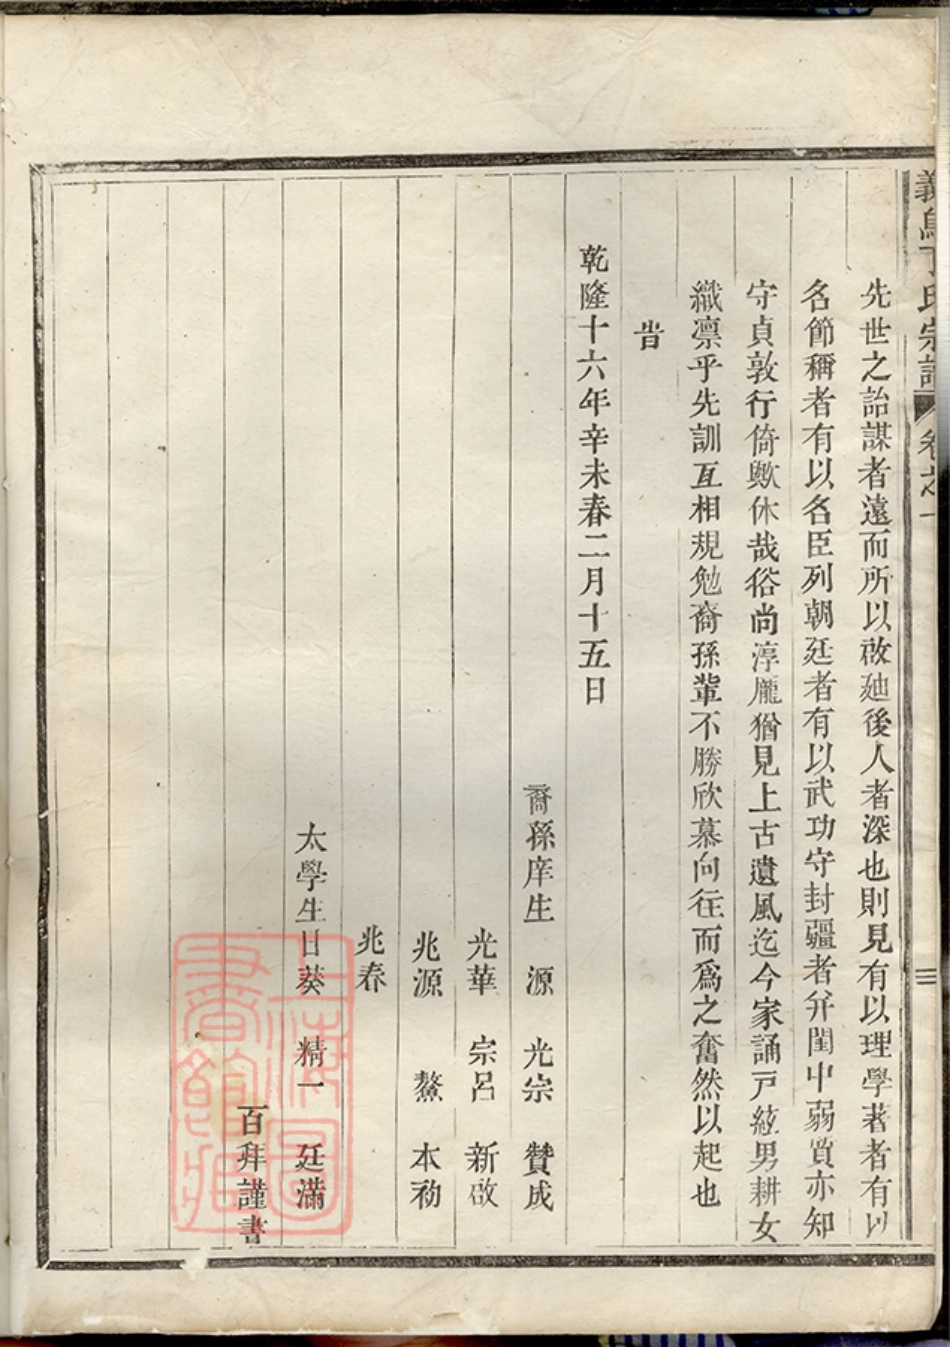 義烏丁氏宗譜 卷之一 三
先世之詒謀者遠而所以啟廸後人者深也則見有以理學著者有以
名節稱者有以名臣列朝廷者有以武功守封疆者并閨中弱質亦知
守貞敦行倚歟休哉俗尚淳龐猶見上古遺風迄今家誦戸絃男耕女
織凛乎先訓互相規勉裔孫輩不勝欣慕向往而爲之奮然以起也
旹
乾隆十六年辛未春二月十五日
裔孫庠生 源 光宗 贊成
光華 宗呂 新啟
兆源 鰲 本初
兆春
太學生日葵 精一 廷滿
百拜謹書
上海圖書館藏